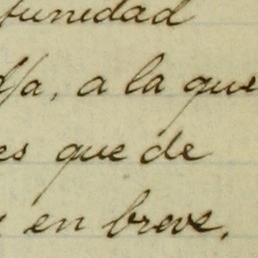 tunidad
a, a la que
es que de
en breve.